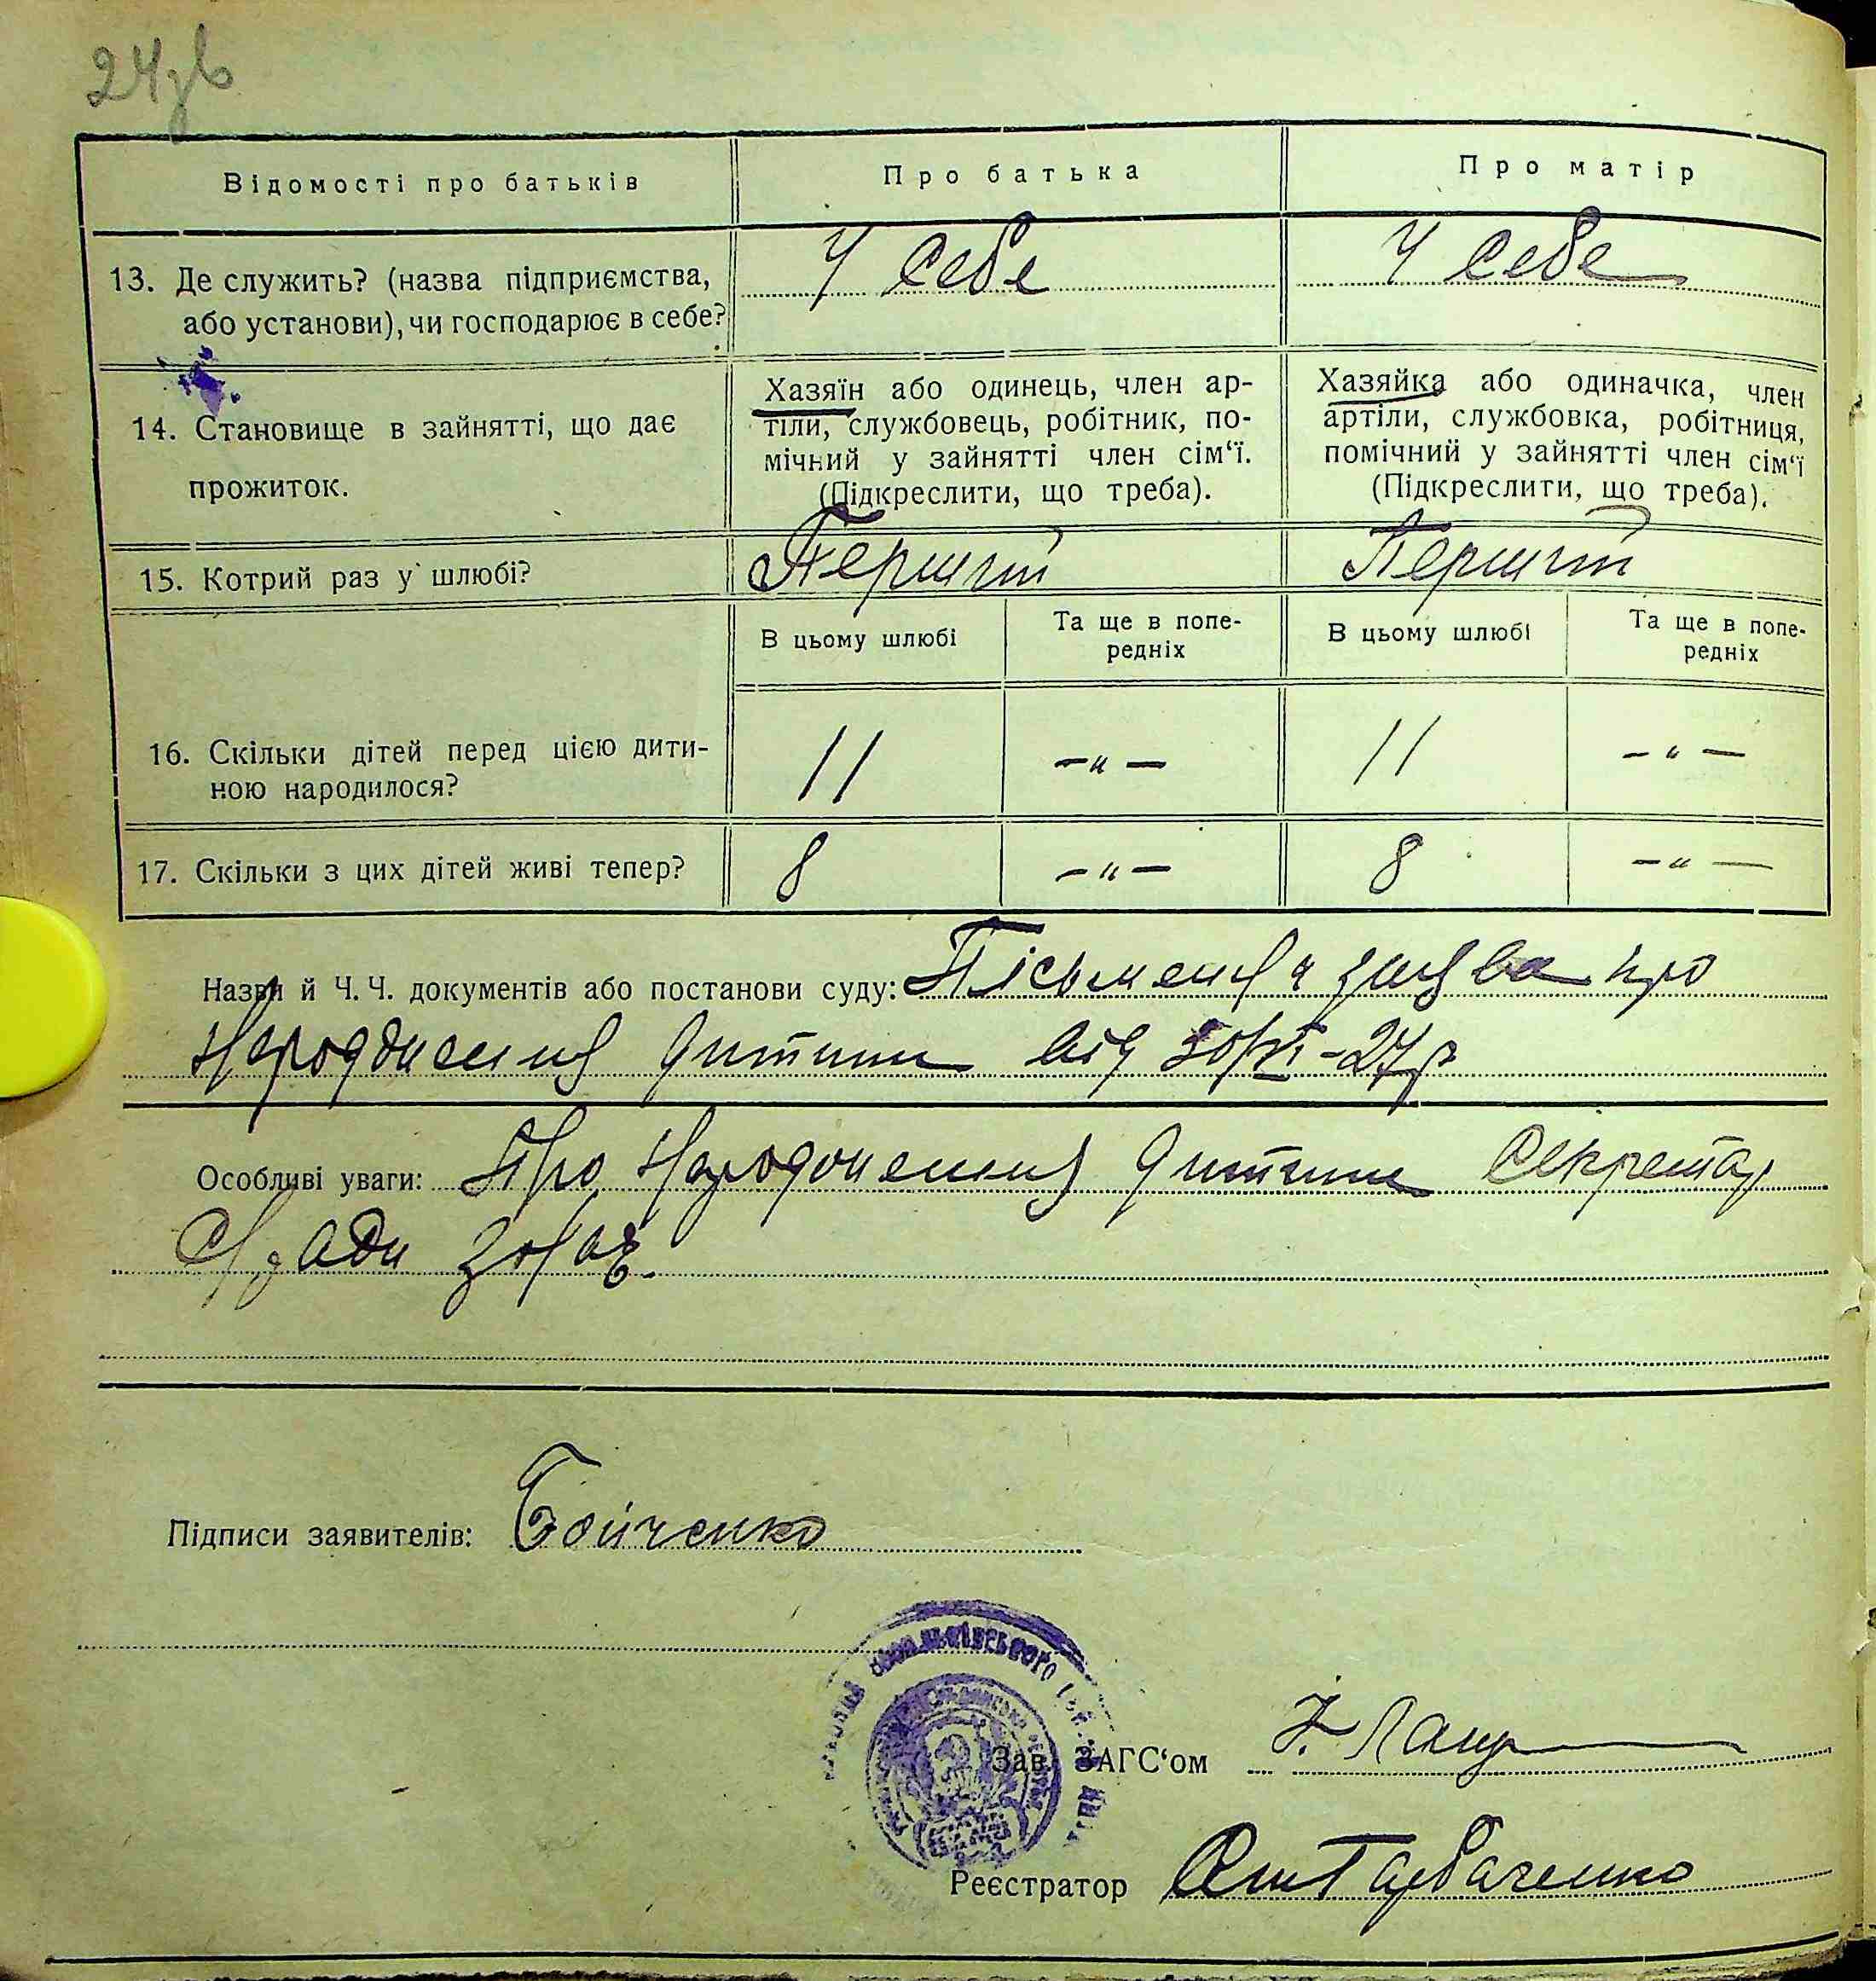 24зв
Відомості про батьків
Про батька
Про матір
13. Де служить? (назва підприємства,
або установи), чи господарює в себе?
У себе
У себе
14. Становище в зайнятті, що дає
прожиток.
Хазяїн або одинець, член ар-
тіли, службовець, робітник, по-
мічний у зайнятті член сім‘ї.
(Підкреслити, що треба).
Хазяйка або одиначка, член
артіли, службовка, робітниця,
помічний у зайнятті член сім‘ї
(Підкреслити, що треба).
15. Котрий раз у шлюбі?
Перший
Перший
В цьому шлюбі
Та ще в попе-
редніх
В цьому шлюбі
Та ще в попе-
редніх
16. Скільки дітей перед цією дити-
ною народилося?
11
—„—
11
—„—
17. Скільки з цих дітей живі тепер?
8
—„—
8
—„—
Назви й Ч. Ч. документів або постанови суду: Пісьменна заява про
народження дитини від 30/XI-27р
Особливі уваги: Про народження дитини Секретар
С/ради
Підписи заявителів: Бойченко
Зав. ЗАГС‘ом
Реєстратор